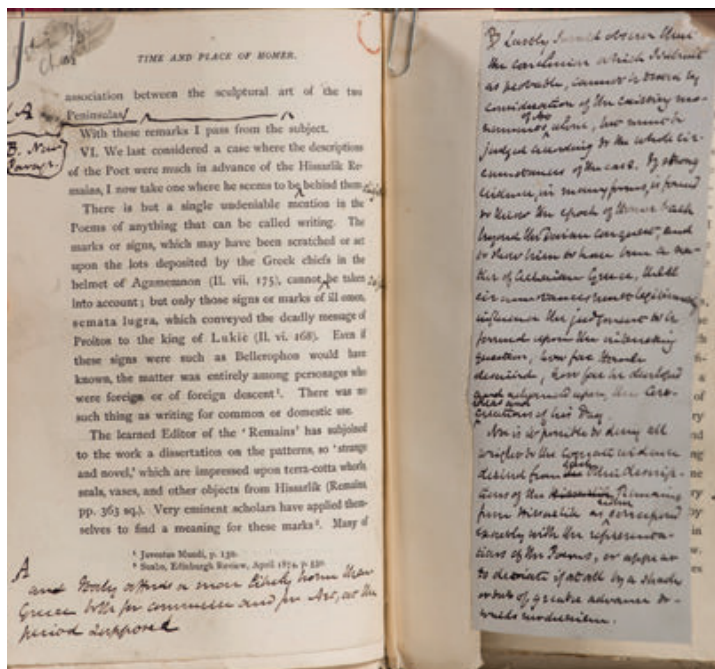 TIME AND PLACE OF HOMER.
association between the sculptural art of the two
Peninsulas/
A
With these remarks I pass from the subject.
B. New
Paragr.
VI. We last considered a case where the descriptions
of the Poet were much in advance of the Hissarlik Re-
mains, I now take one where he seems to be behind them
There is but a single undeniable mention in the
Poems of anything that can be called writing. The
marks or signs, which may have been scratched or set
upon the lots deposited by the Greek chiefs in the
helmet of Agamemnon (Il. vii. 175), cannot be taken
into account; but only those signs or marks of ill omen,
semata lugra, which conveyed the deadly message of
Proitos to the king of Lukiè (Il. vi. 168). Even if
these signs were such as Bellerophon would have
known, the matter was entirely among personages who
were foreign or of foreign descent¹. There was no
such thing as writing for common or domestic use.
The learned Editor of the 'Remains' has subjoined
to the work a dissertation on the patterns, so 'strange
and novel,' which are impressed upon terra-cotta whorls
seals, vases, and other objects from Hissarlik (Remains,
pp. 363 sq.). Very eminent scholars have applied them-
selves to find a meaning for these marks². Many of
¹ Juventus Mundi, p. 130.
² Suabo, Edinburgh Review, April 1874, p. 530.
A
and Italy affords a more likely home than
Greece both for commerce and for Art, at the
period supposed
B Lastly I must observe that
the conclusion which I submit
as probable, cannot be tested by
consideration of the existing mo-
numents of Art alone, but must be
judged according to the whole cir-
cumstances of the case. If strong
evidence, in many forms, is found
to throw the epoch of Homer back
beyond the Dorian conquest, and
to show him to have been a na-
tive of Achaian Greece, these
circumstances must legitimately
influence the judgment to be
formed upon the interesting
question, how far Homer
described, how far he developed
and improved upon, the
creations of his Day.
Nor is it possible to deny all
weight to the cognate evidence
derived from the descrip-
tions of the Remains
from Hissarlik as correspond
exactly with the representa-
tions of the Poems, or appear
to deviate if at all by a shade
or two of greater advance to-
wards modernism.